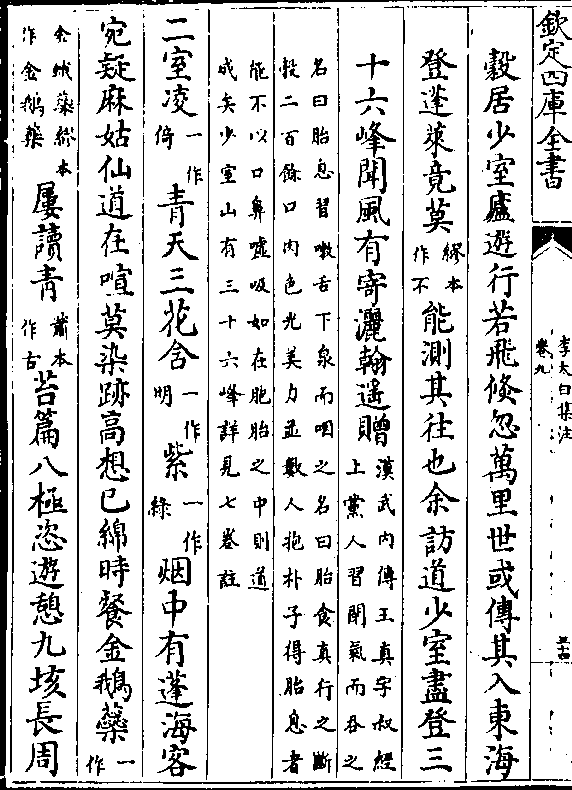 欽定四庫全書
李太白集注
卷九
穀居少室廬遊行若飛倐忽萬里世或傳其入東海
登蓬萊竟莫繆本作不能測其往也余訪道少室盡登三
十六峰聞風有寄灑翰遥贈漢武内傳王真字叔經
上黨人習閉氣而吞之
名曰胎息習嗽舌下泉而咽之名曰胎食真行之斷
穀二百餘口肉色光美力並數人抱朴子得胎息者
能不以口鼻嘘吸如在胞胎之中則道
成矣少室山有三十六峰詳見七卷註
二室凌一作倚青天三花含一作明紫一作綠烟中有蓬海客
宛疑麻姑仙道在喧莫染跡高想已綿時餐金鵝蘂一作
金蛾藥繆本作金鵝藥屢讀青蕭本作古苔篇八極恣遊憩九垓長周